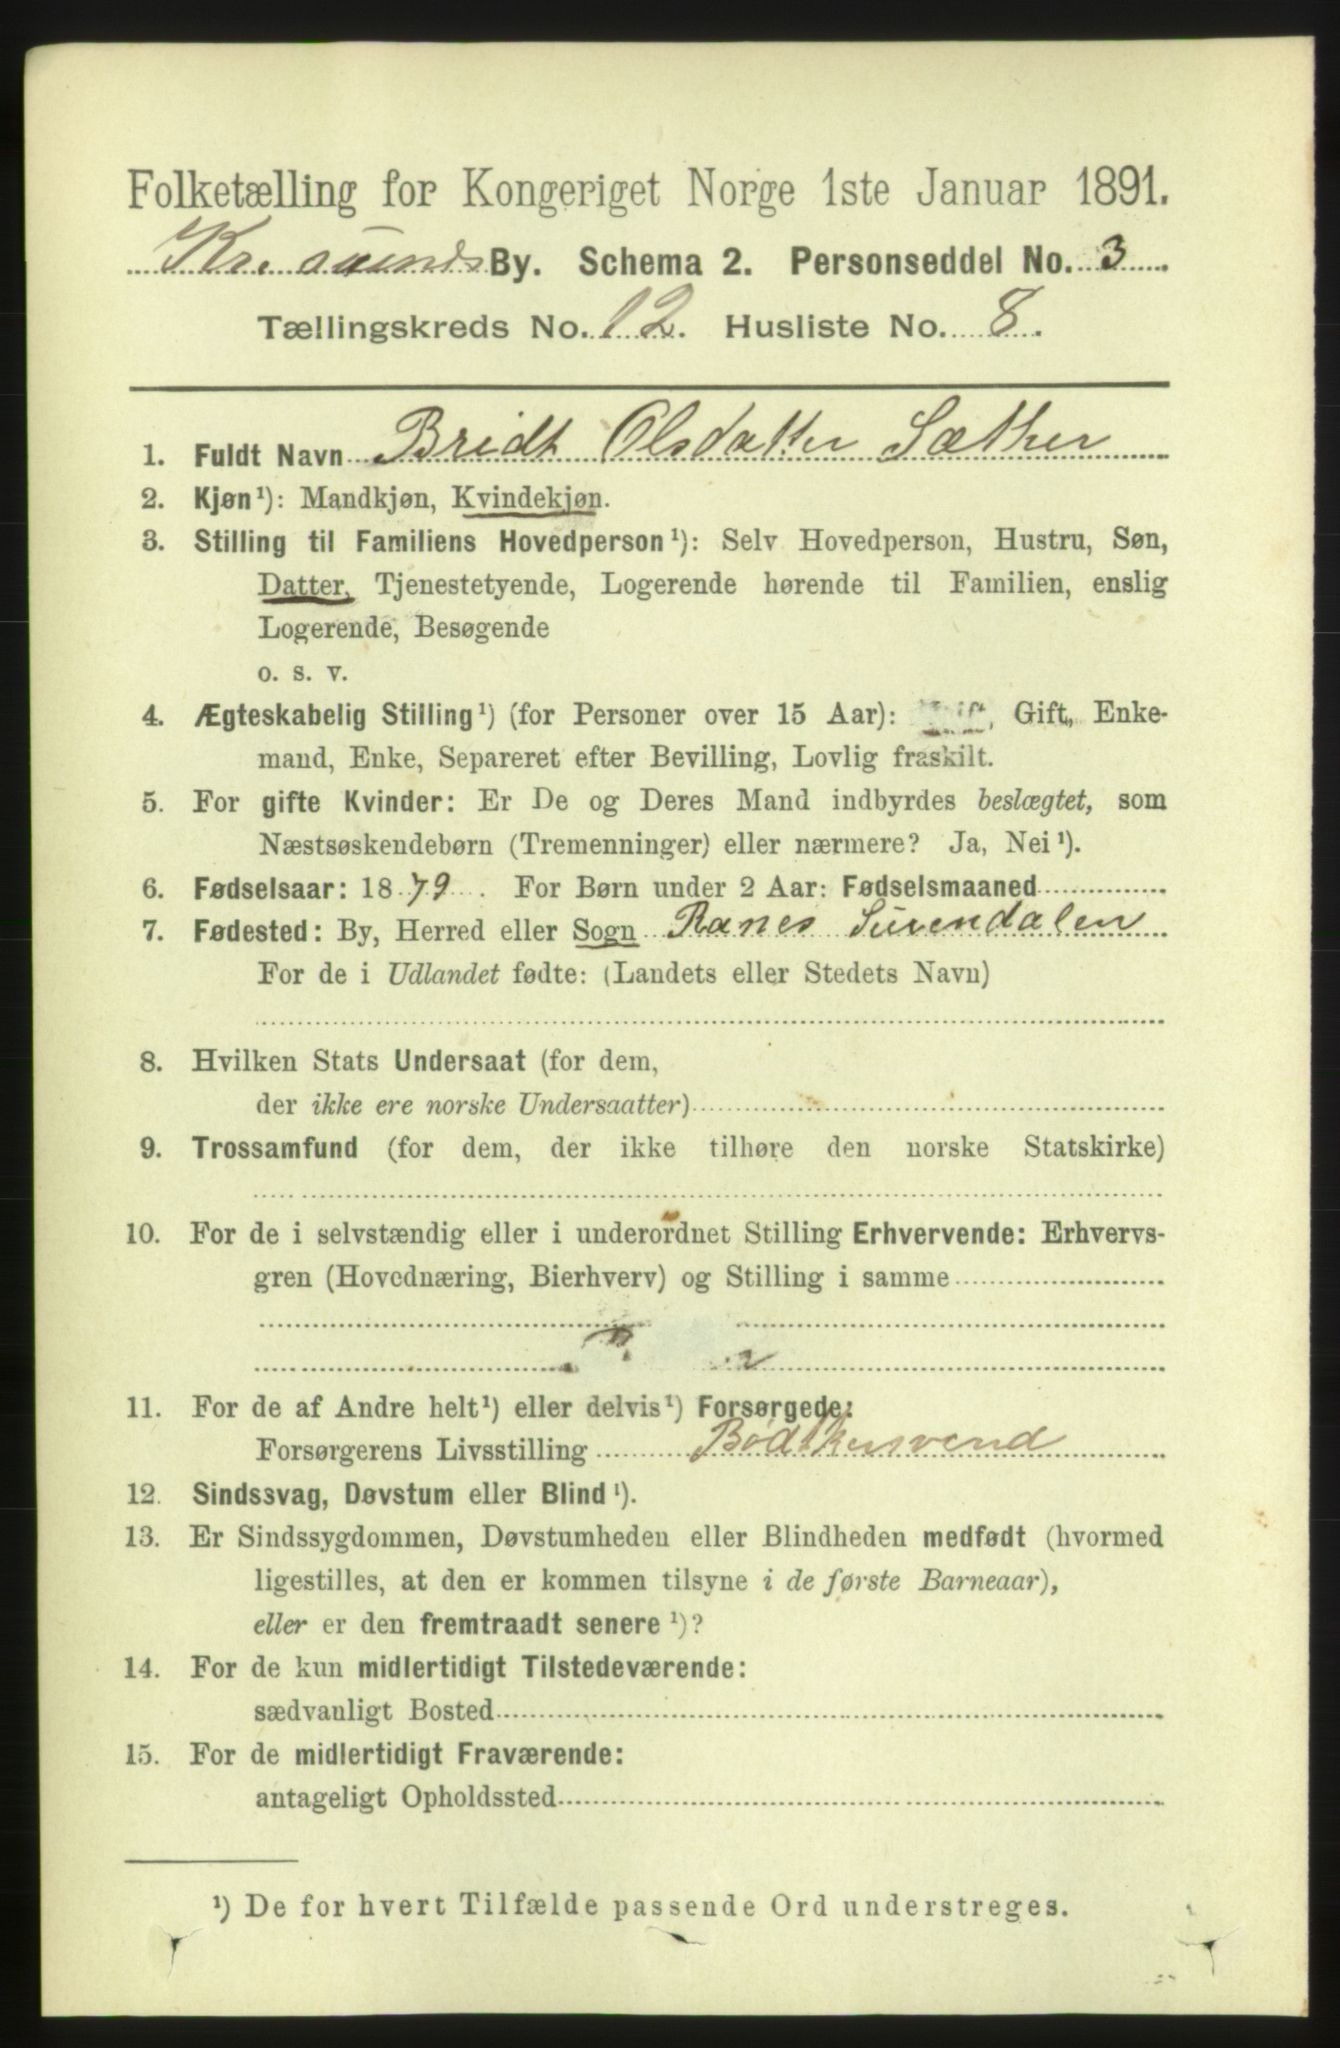 Folketælling for Kongeriget Norge 1ste Januar 1891.
Kr. sunds By. Schema 2. Personseddel No. 3
Tællingskreds No. 12. Husliste No. 8.
1. Fuldt Navn Bridt Olsdatter Sæther
2. Kjøn¹): Mandkjøn, Kvindekjøn.
3. Stilling til Familiens Hovedperson¹): Selv Hovedperson, Hustru, Søn,
Datter, Tjenestetyende, Logerende hørende til Familien, enslig
Logerende, Besøgende
o. s. v.
4. Ægteskabelig Stilling¹) (for Personer over 15 Aar): Gift, Enke-
mand, Enke, Separeret efter Bevilling, Lovlig fraskilt.
5. For gifte Kvinder: Er De og Deres Mand indbyrdes beslægtet, som
Næstsøskendebørn (Tremenninger) eller nærmere? Ja, Nei¹).
6. Fødselsaar: 1879. For Børn under 2 Aar: Fødselsmaaned
7. Fødested: By, Herred eller Sogn Ranes Surendalen
For de i Udlandet fødte: (Landets eller Stedets Navn)
8. Hvilken Stats Undersaat (for dem,
der ikke ere norske Undersaatter)
9. Trossamfund (for dem, der ikke tilhøre den norske Statskirke)
10. For de i selvstændig eller i underordnet Stilling Erhvervende: Erhvervs-
gren (Hovednæring, Bierhverv) og Stilling i samme
11. For de af Andre helt¹) eller delvis¹) Forsørgede:
Forsørgerens Livsstilling Bødtkersvend
12. Sindssvag, Døvstum eller Blind¹).
13. Er Sindssygdommen, Døvstumheden eller Blindheden medfødt (hvormed
ligestilles, at den er kommen tilsyne i de første Barneaar),
eller er den fremtraadt senere¹)?
14. For de kun midlertidigt Tilstedeværende:
sædvanligt Bosted
15. For de midlertidigt Fraværende:
antageligt Opholdssted
¹) De for hvert Tilfælde passende Ord understreges.